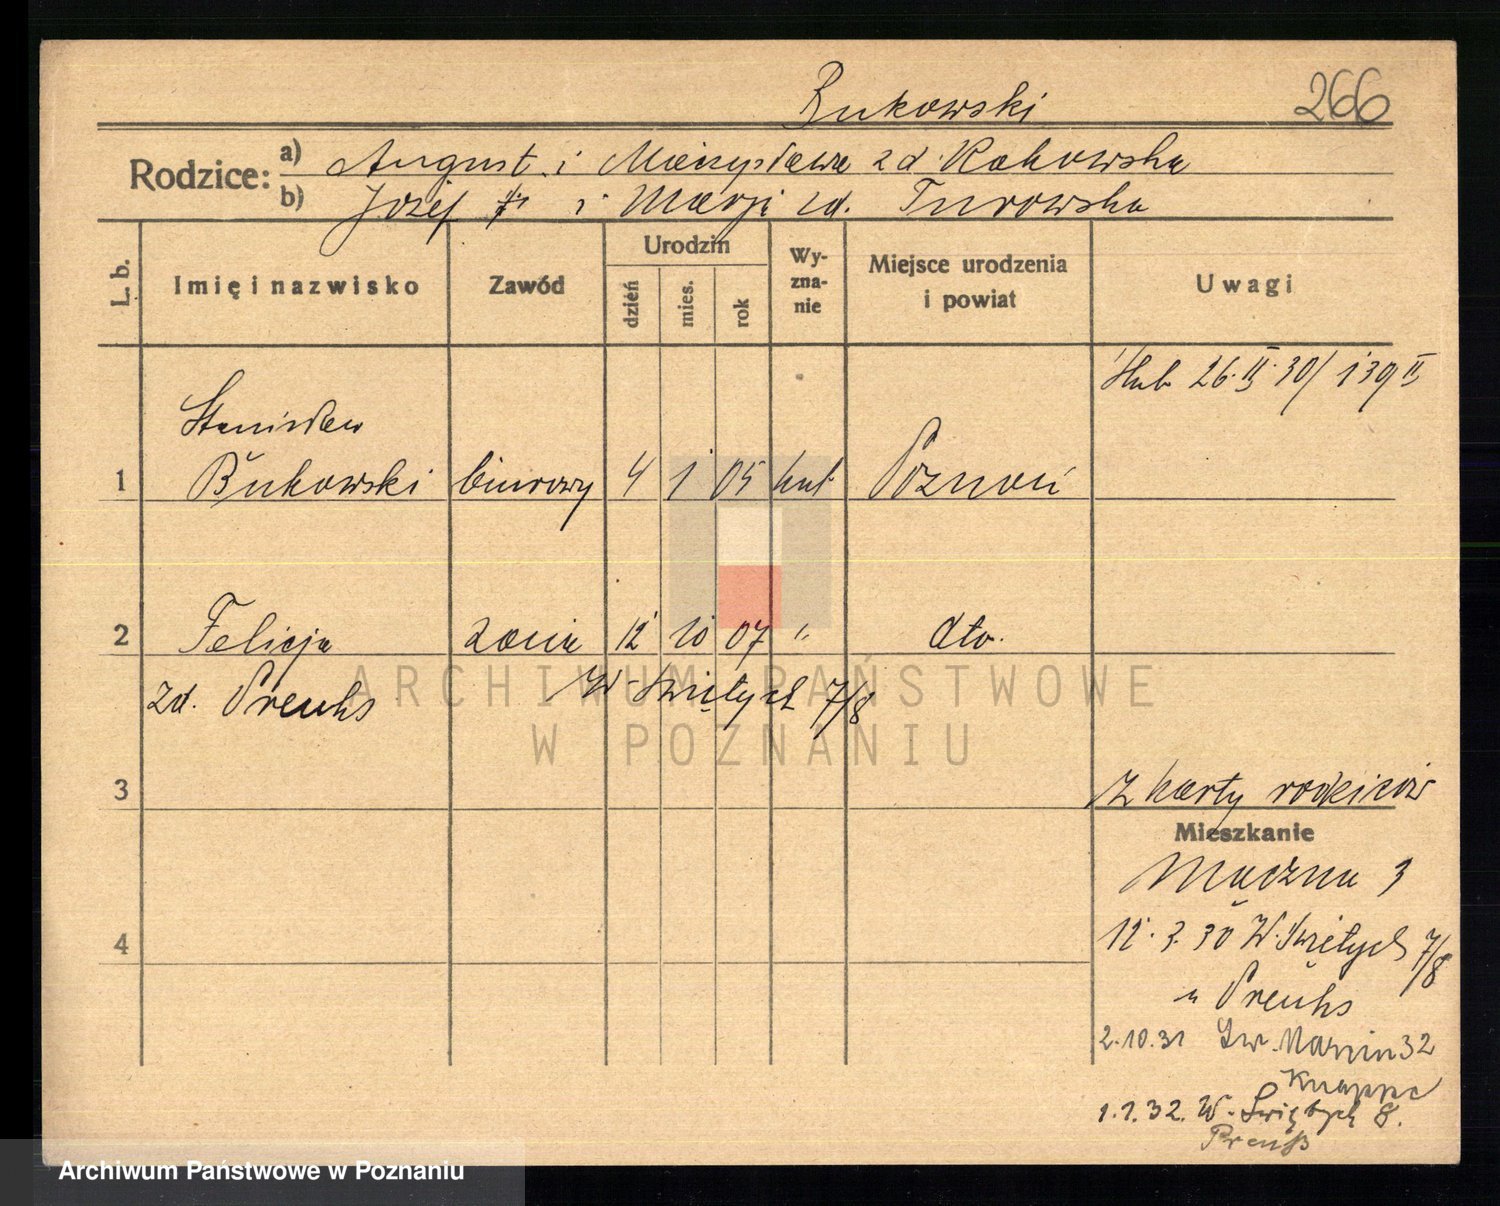 Bukowski 266
Rodzice: a) August i Mieczysława zd. Rakowska
b) Józef i Marji zd. Turowska
L. b. Imię i nazwisko Zawód Urodzin dzień mies. rok Wy-zna-nie Miejsce urodzenia i powiat Uwagi
ślub 26. II. 30/ 139 II
Stanisław
1 Bukowski biurowy 4 1 05 kat Poznań
2 Felicja żona 12 10 07 " dto.
zd. Preuhs W-Świętych 7/8
3 Z karty rodziców
Mieszkanie
Mączna 3
4 12. 3. 30 W. Świętych 7/8
u Preuhs
2.10.31 Św. Marcin 32
Knappe
1.1.32. W-Świętych 8.
Preuß
ARCHIWUM PAŃSTWOWE
W POZNANIU
Archiwum Państwowe w Poznaniu